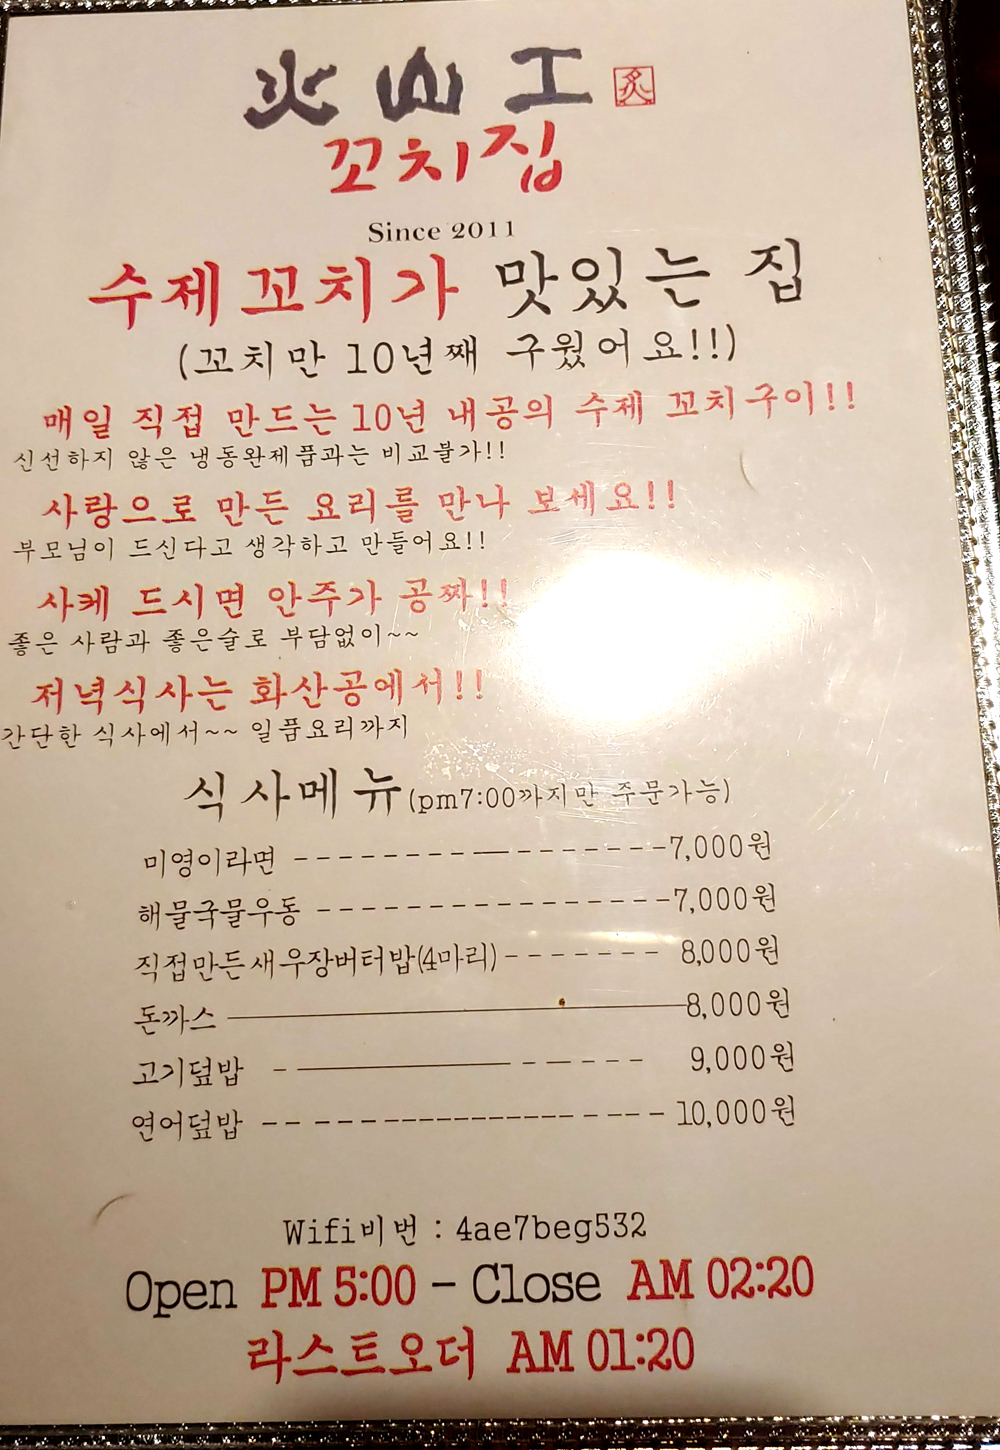 火山工 炙
꼬치집
Since 2011
수제꼬치가 맛있는 집
(꼬치만 10년째 구웠어요!!)
매일 직접 만드는 10년 내공의 수제 꼬치구이!!
신선하지 않은 냉동완제품과는 비교불가!!
사랑으로 만든 요리를 만나 보세요!!
부모님이 드신다고 생각하고 만들어요!!
사케 드시면 안주가 공짜!!
좋은 사람과 좋은술로 부담없이~~
저녁식사는 화산공에서!!
간단한 식사에서~~ 일품요리까지
식사메뉴(pm7:00까지만 주문가능)
미영이라면 ----------------7,000원
해물국물우동 ----------------7,000원
직접만든새우장버터밥(4마리)------- 8,000원
돈까스 ————————8,000원
고기덮밥 -————— ----- 9,000원
연어덮밥 ---------------- 10,000원
Wifi비번 : 4ae7beg532
Open PM 5:00 - Close AM 02:20
라스트오더 AM 01:20